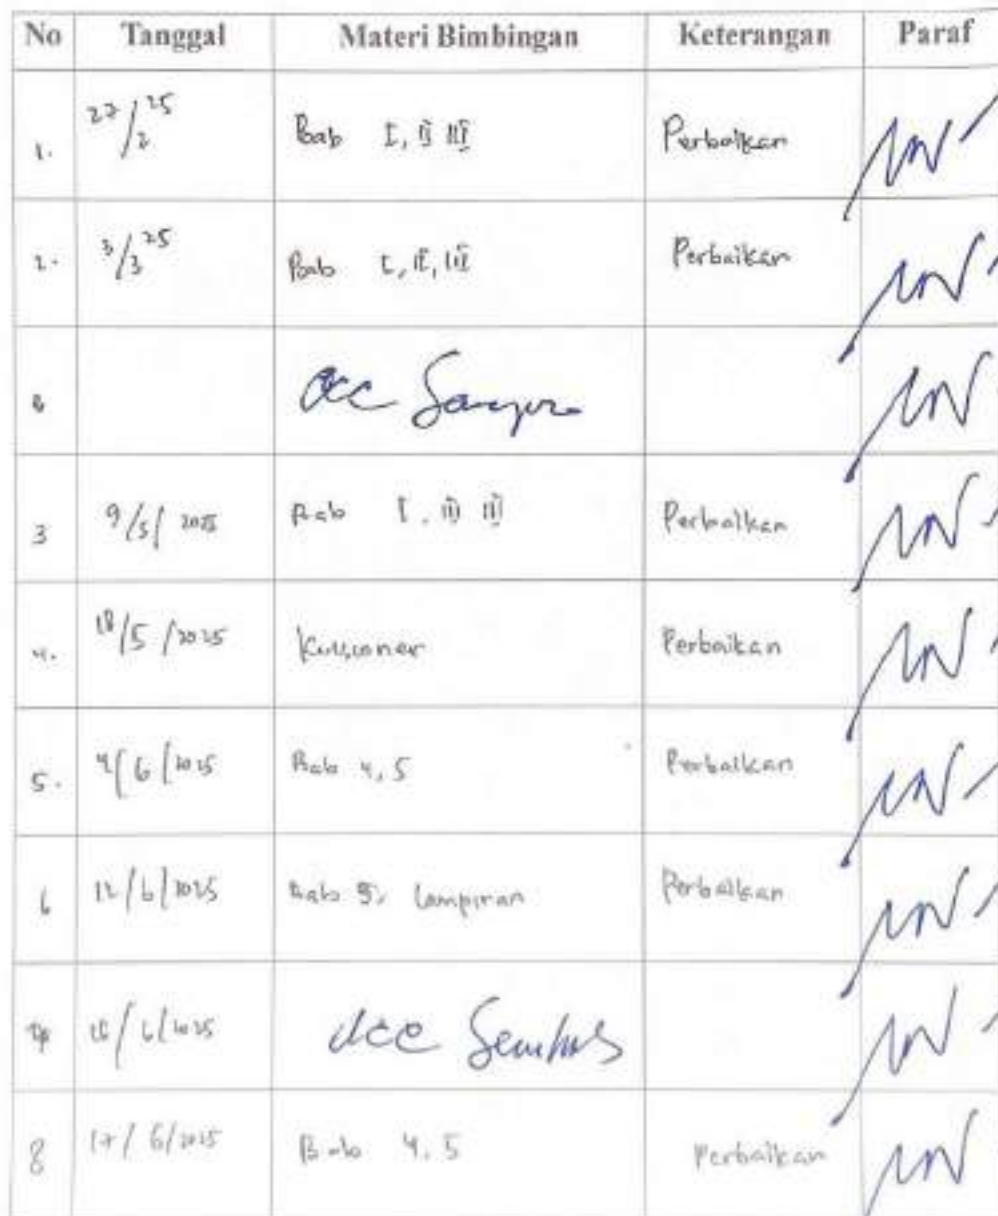 No Tanggal Materi Bimbingan Keterangan Paraf
1. 27/2 25 Bab I, II III Perbaikan
2. 3/3 25 Bab I, II, III Perbaikan
acc
3 9/5/ 2025 Bab I, II III Perbaikan
4. 18/5 /2025 Kuisioner Perbaikan
5. 4/6/2025 Bab 4, 5 Perbaikan
6 12/6/2025 Bab 5, Lampiran Perbaikan
/6/2025 Acc Semhas
8 17/6/2025 Bab 4. 5 Perbaikan